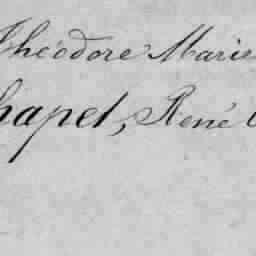 Théodore Marie
hapel, René